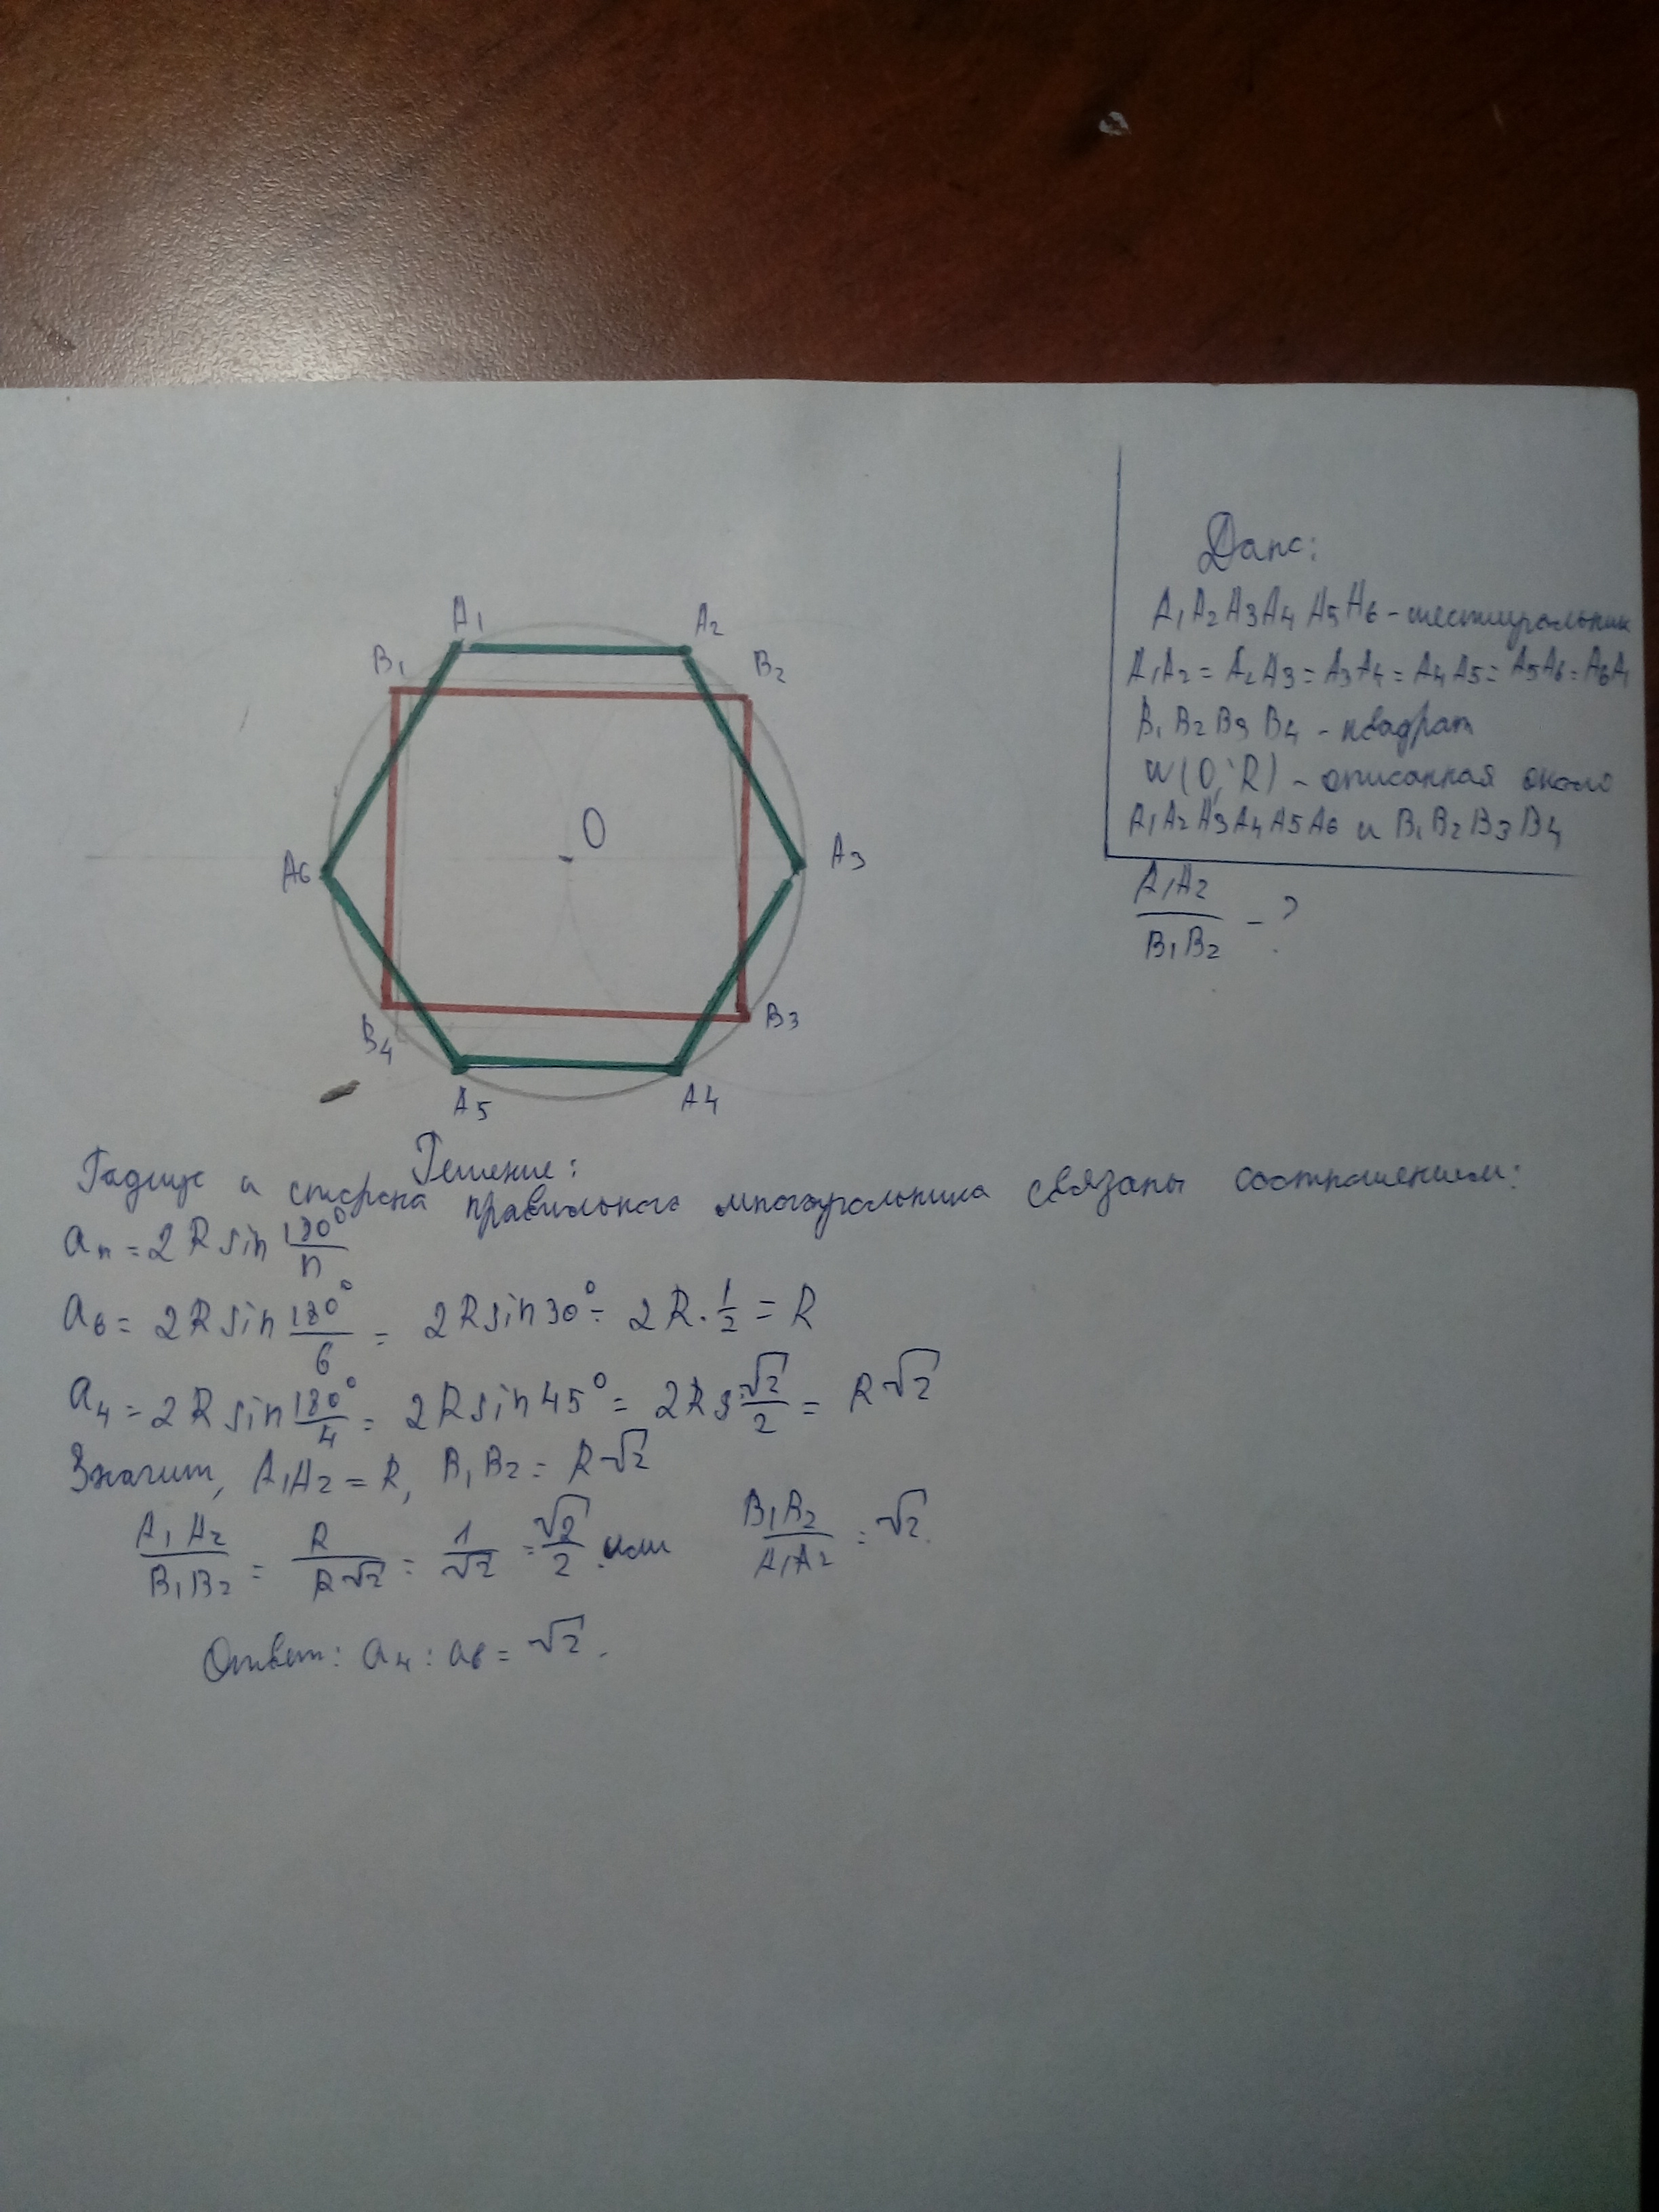 A₁ A₂
B₁ B₂
O
A₆ A₃
B₄ B₃
A₅ A₄
Дано:
A₁A₂A₃A₄A₅A₆ - шестиугольник
A₁A₂ = A₂A₃ = A₃A₄ = A₄A₅ = A₅A₆ = A₆A₁
B₁B₂B₃B₄ - квадрат
W(O; R) - описанная около
A₁A₂A₃A₄A₅A₆ и B₁B₂B₃B₄
A₁A₂/B₁B₂ - ?
Решение:
Радиус и сторона правильного многоугольника связаны соотношением:
aₙ = 2R sin 180°/n
a₆ = 2R sin 180°/6 = 2R sin 30° = 2R · 1/2 = R
a₄ = 2R sin 180°/4 = 2R sin 45° = 2R √2/2 = R√2
Значит, A₁A₂ = R, B₁B₂ = R√2
A₁A₂/B₁B₂ = R/R√2 = 1/√2 = √2/2 или B₁B₂/A₁A₂ = √2.
Ответ: a₄ : a₆ = √2.